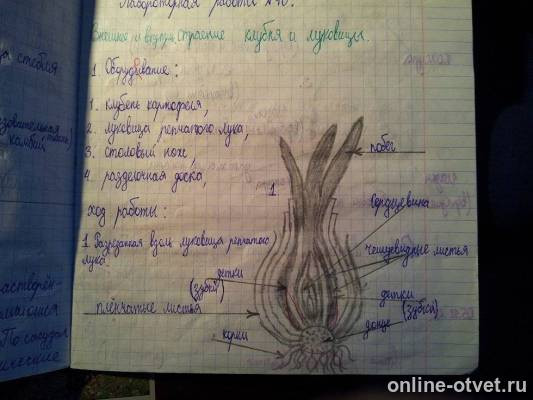 Лабораторная работа №10.
Внешнее и внутрен. строение клубня и луковицы.
1. Оборудование:
1. клубень картофеля,
2. луковица репчатого лука,
3. столовый нож,
4. разделочная доска,
ход работы:
1. Разрезанная вдоль луковица репчатого
лука.
1.
побег
Сердцевина
чешуевидные листья
детки
(зубки)
детки
(зубки)
плёнчатые листья
донце
корни
а стебля
камбий
По сосудам
online-otvet.ru